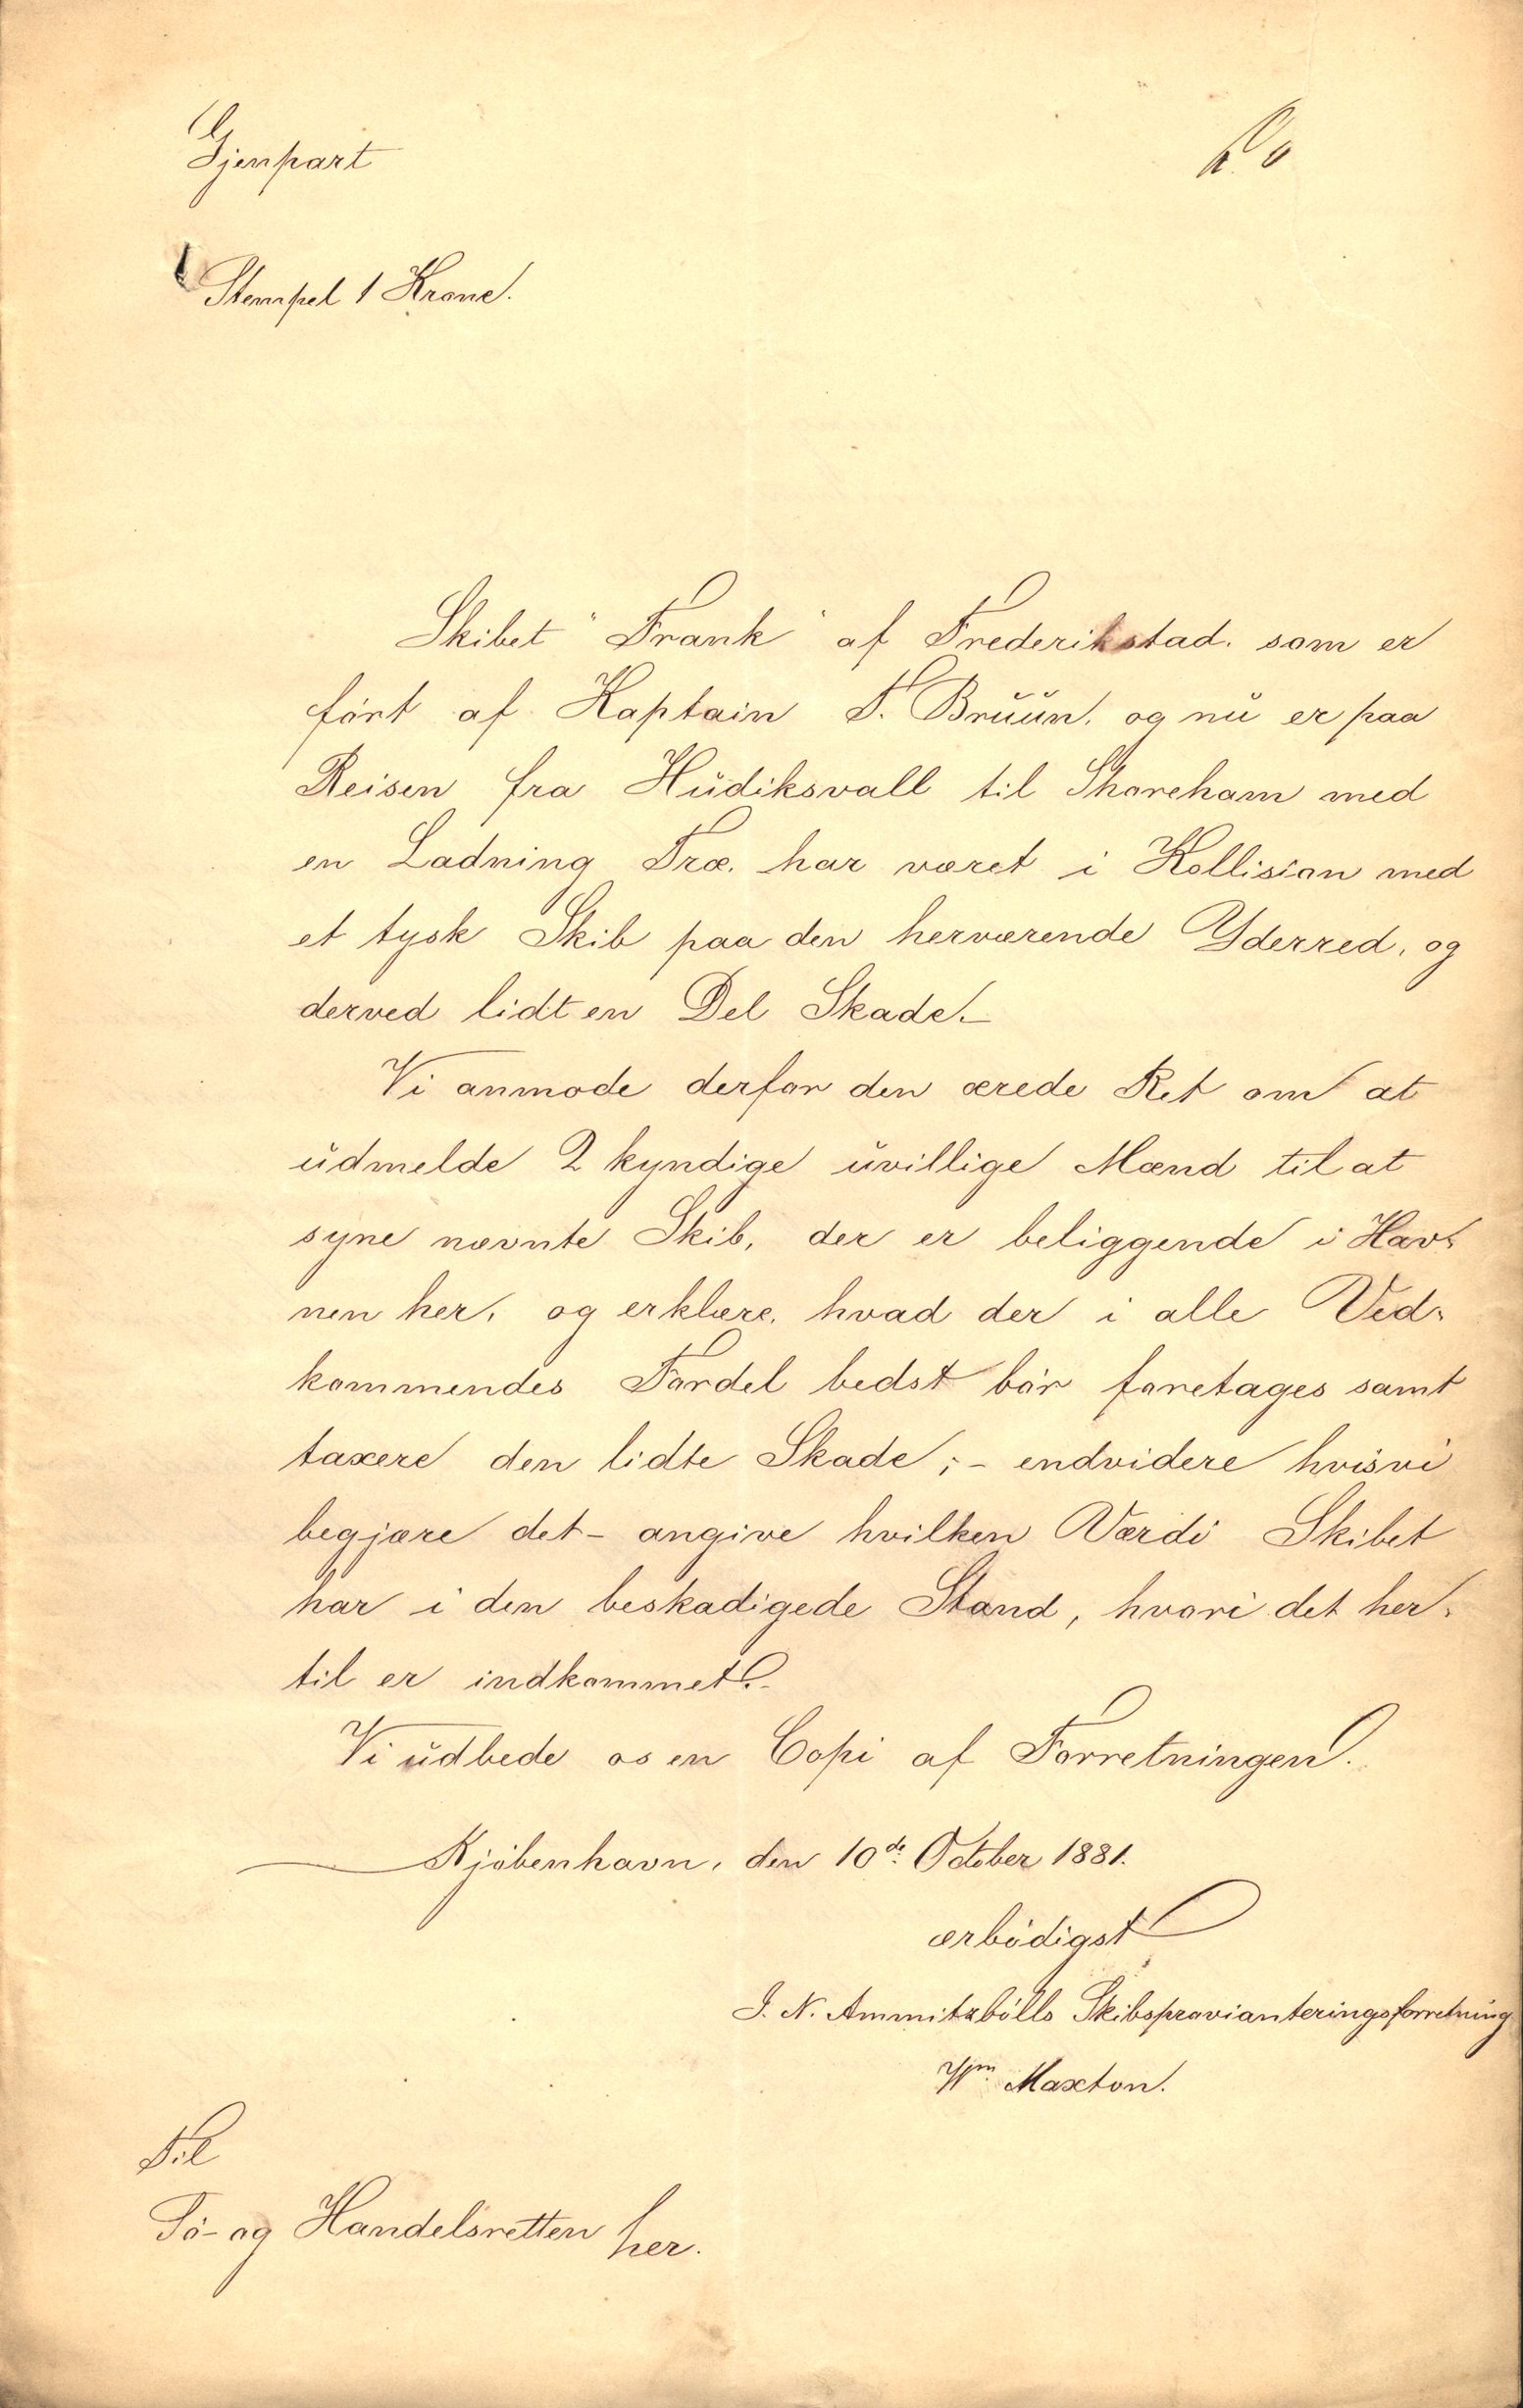 Gjenpart
Stempel 1 Krone.
Skibet "Frank" af Frederikstad. som er
ført af Kaptain T. Bruun. og nu er paa
Reisen fra Hudiksvall til Shoreham med
en Ladning Træ. har været i Kollision med
et tysk Skib paa den herværende Yderred, og
derved lidt en Del Skade.-
Vi anmode derfor den ærede Ret om at
udmelde 2 kyndige uvillige Mænd til at
syne nævnte Skib, der er beliggende i Hav-
nen her, og erklære, hvad der i alle Ved-
kommendes Fordel bedst bør foretages samt
taxere den lidte Skade;- endvidere hvis vi
begjære det- angive hvilken Værdi Skibet
har i den beskadigede Stand, hvori det her-
til er indkommet.-
Vi udbede os en Copi af Forretningen.
Kjøbenhavn, den 10de October 1881.
ærbødigst
J. N. Ammitzbølls Skibsprovianteringsforretning
Wm Maxton.
Til
Sø- og Handelsretten her.